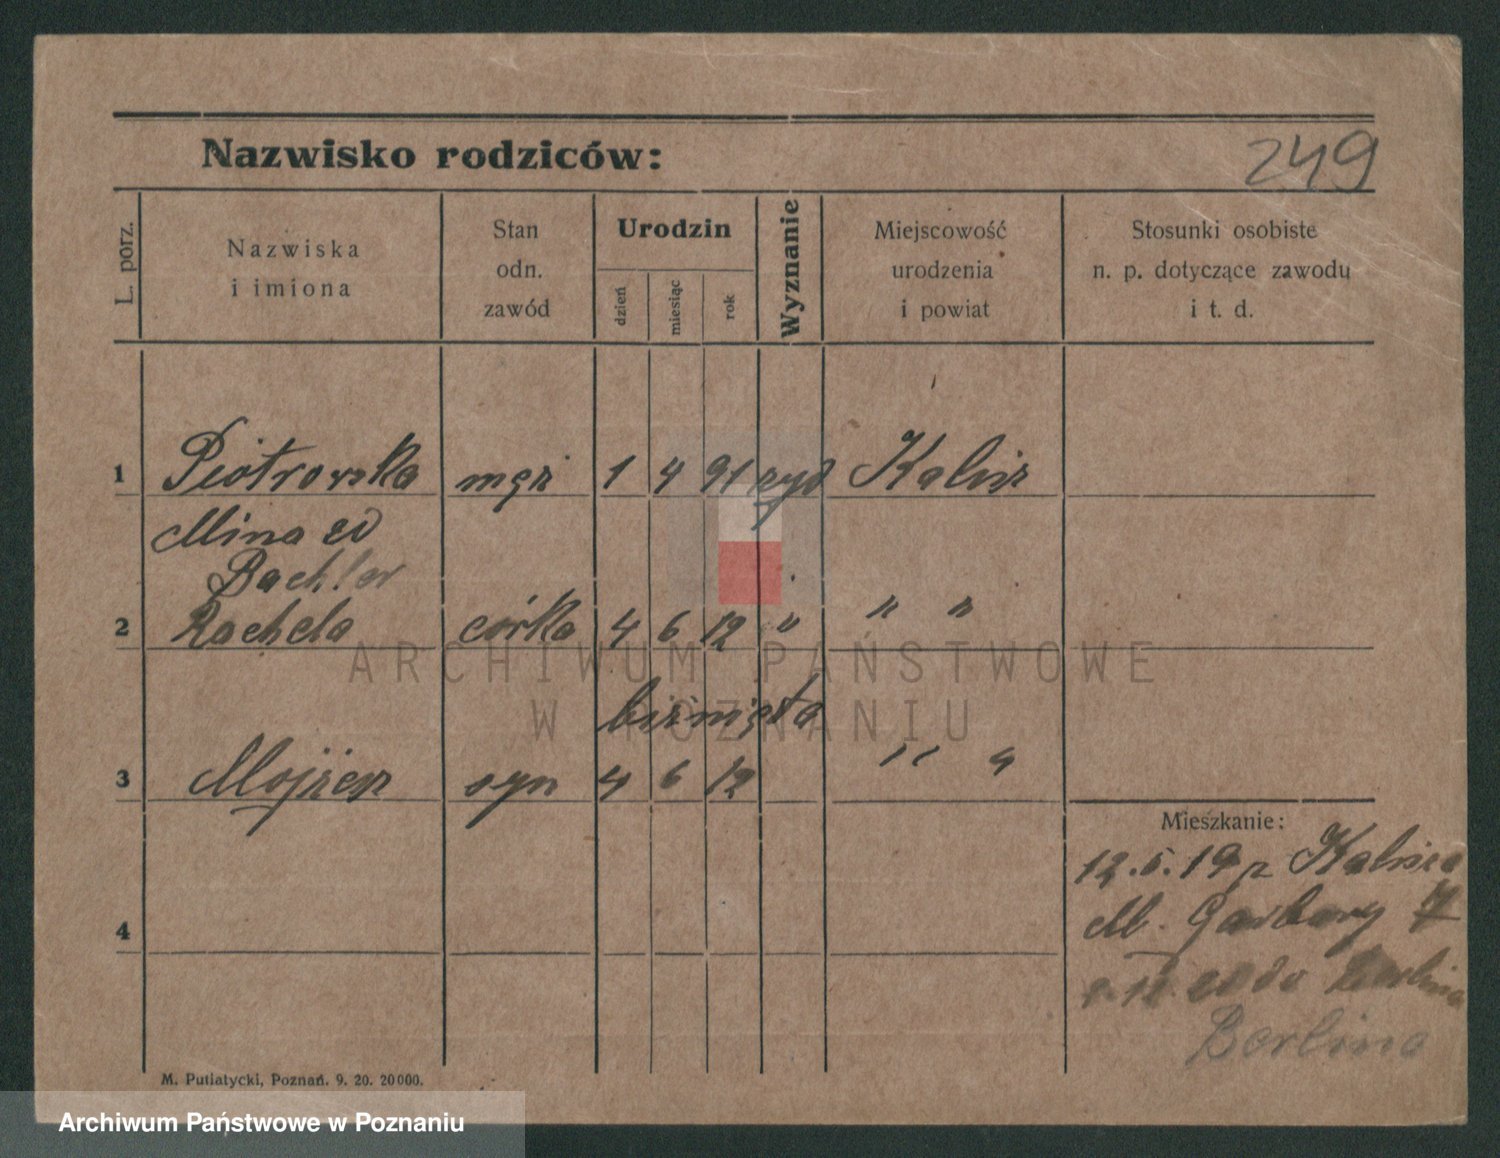 Nazwisko rodziców:
249
L. porz.
Nazwiska
i imiona
Stan
odn.
zawód
Urodzin
dzień
miesiąc
rok
Wyznanie
Miejscowość
urodzenia
i powiat
Stosunki osobiste
n. p. dotyczące zawodu
i t. d.
1 Piotrowska męż 1 4 91 żyd Kalisz
Mina
Bachler
2 Rachela córka 4 6 12 " " "
bliźnięta
3 Mojżesz syn 4 6 12 " "
Mieszkanie:
12.5.19 z Kalisza
M. Garbary 7
do Berlina
Berlina
4
M. Putiatycki, Poznań. 9. 20. 20000.
ARCHIWUM PAŃSTWOWE
W POZNANIU
Archiwum Państwowe w Poznaniu